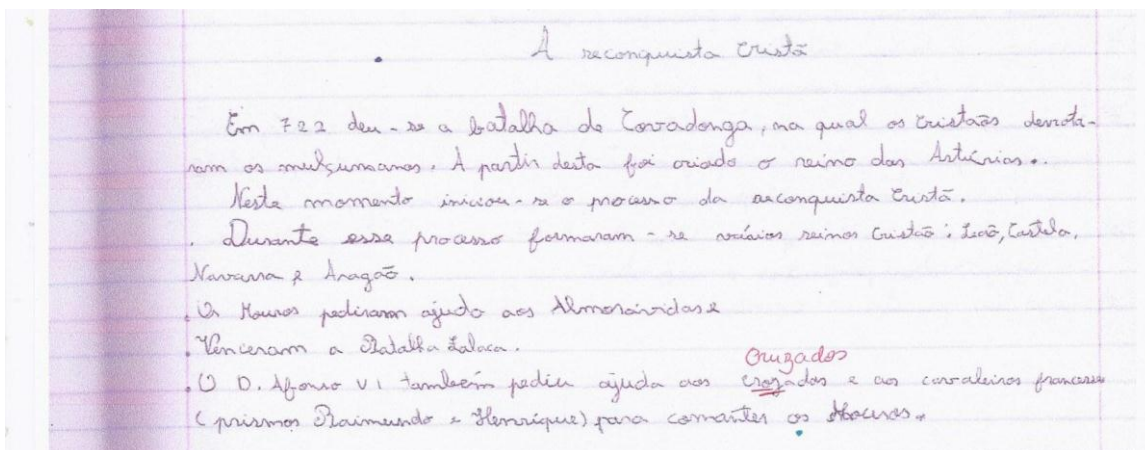 A reconquista Cristã
Em 722 deu-se a batalha de Covadonga, na qual os cristãos derrota-
ram os mulçumanos. A partir desta foi criado o reino das Astúrias.
Neste momento iniciou-se o processo da reconquista Cristã.
Durante esse processo formaram-se vários reinos Cristão: Leão, Castela,
Navarra e Aragão.
Os Mouros pediram ajudo aos Almorávidas e
Venceram a Batalha Zalaca.
Cruzados
O D. Afonso VI também pediu ajuda aos crozados e aos cavaleiros franceses
(prismos Raimundo e Henrique) para comanter os Mouros.